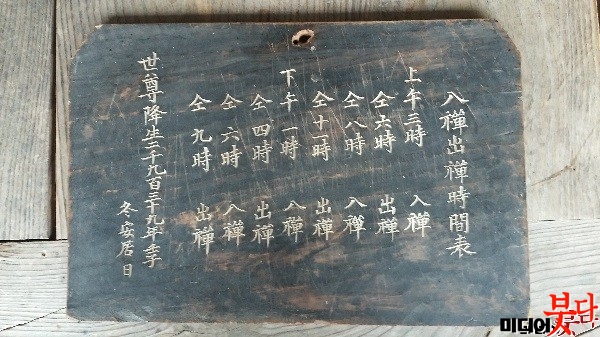 入禪出禪時間表
上午三時 入禪
仝六時 出禪
仝八時 入禪
仝十一時 出禪
下午一時 入禪
仝四時 出禪
仝六時 入禪
仝九時 出禪
世尊降生二千九百三十九年壬子
冬安居日
미디어 붓다